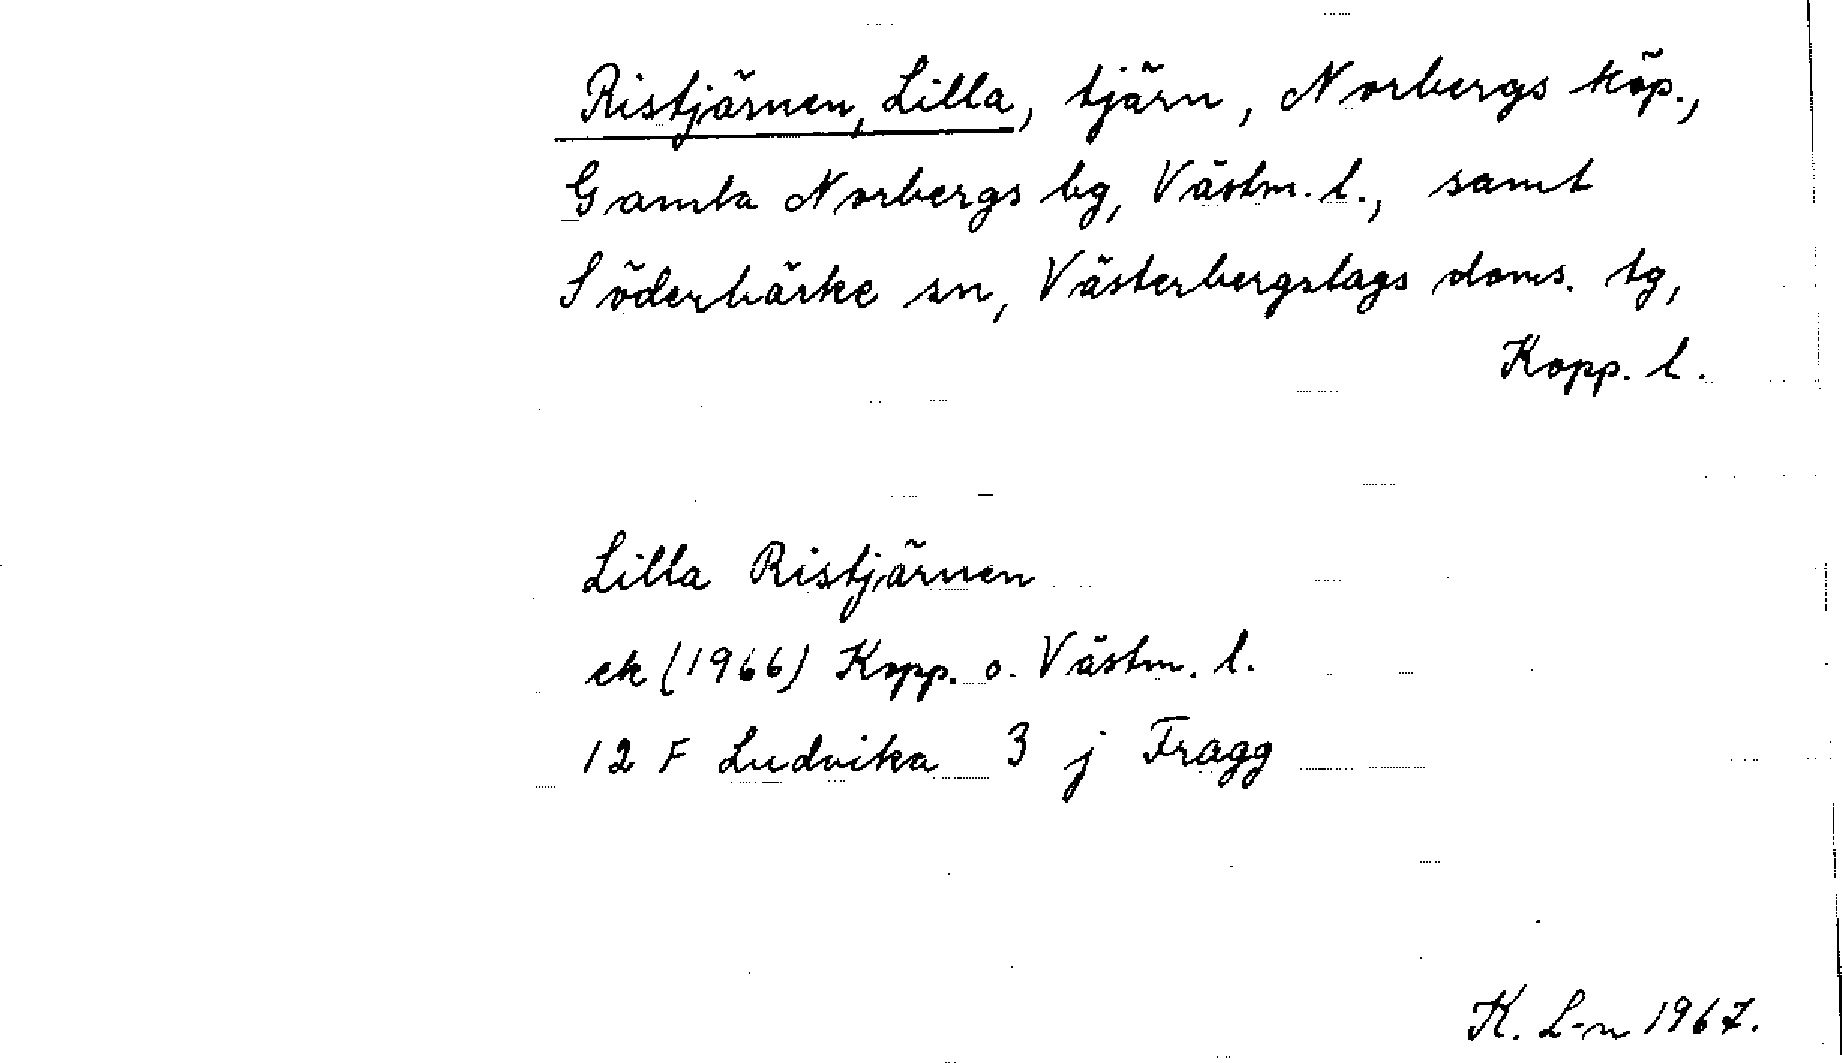 Ristjärnen, Lilla, tjärn, Norbergs köp.,
Gamla Norbergs bg, Västm. l., samt
Söderbärke sn, Västerbergslags doms. tg,
Kopp. l.
Lilla Ristjärnen
ek (1966) Kopp. o. Västm. l.
12 F Ludvika 3 j Fragg
K. L-n 1967.